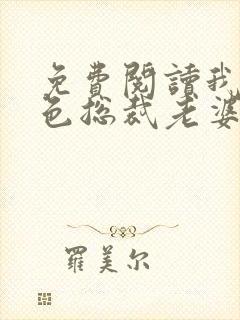 免費閱讀我
色总裁老婆
羅美尔